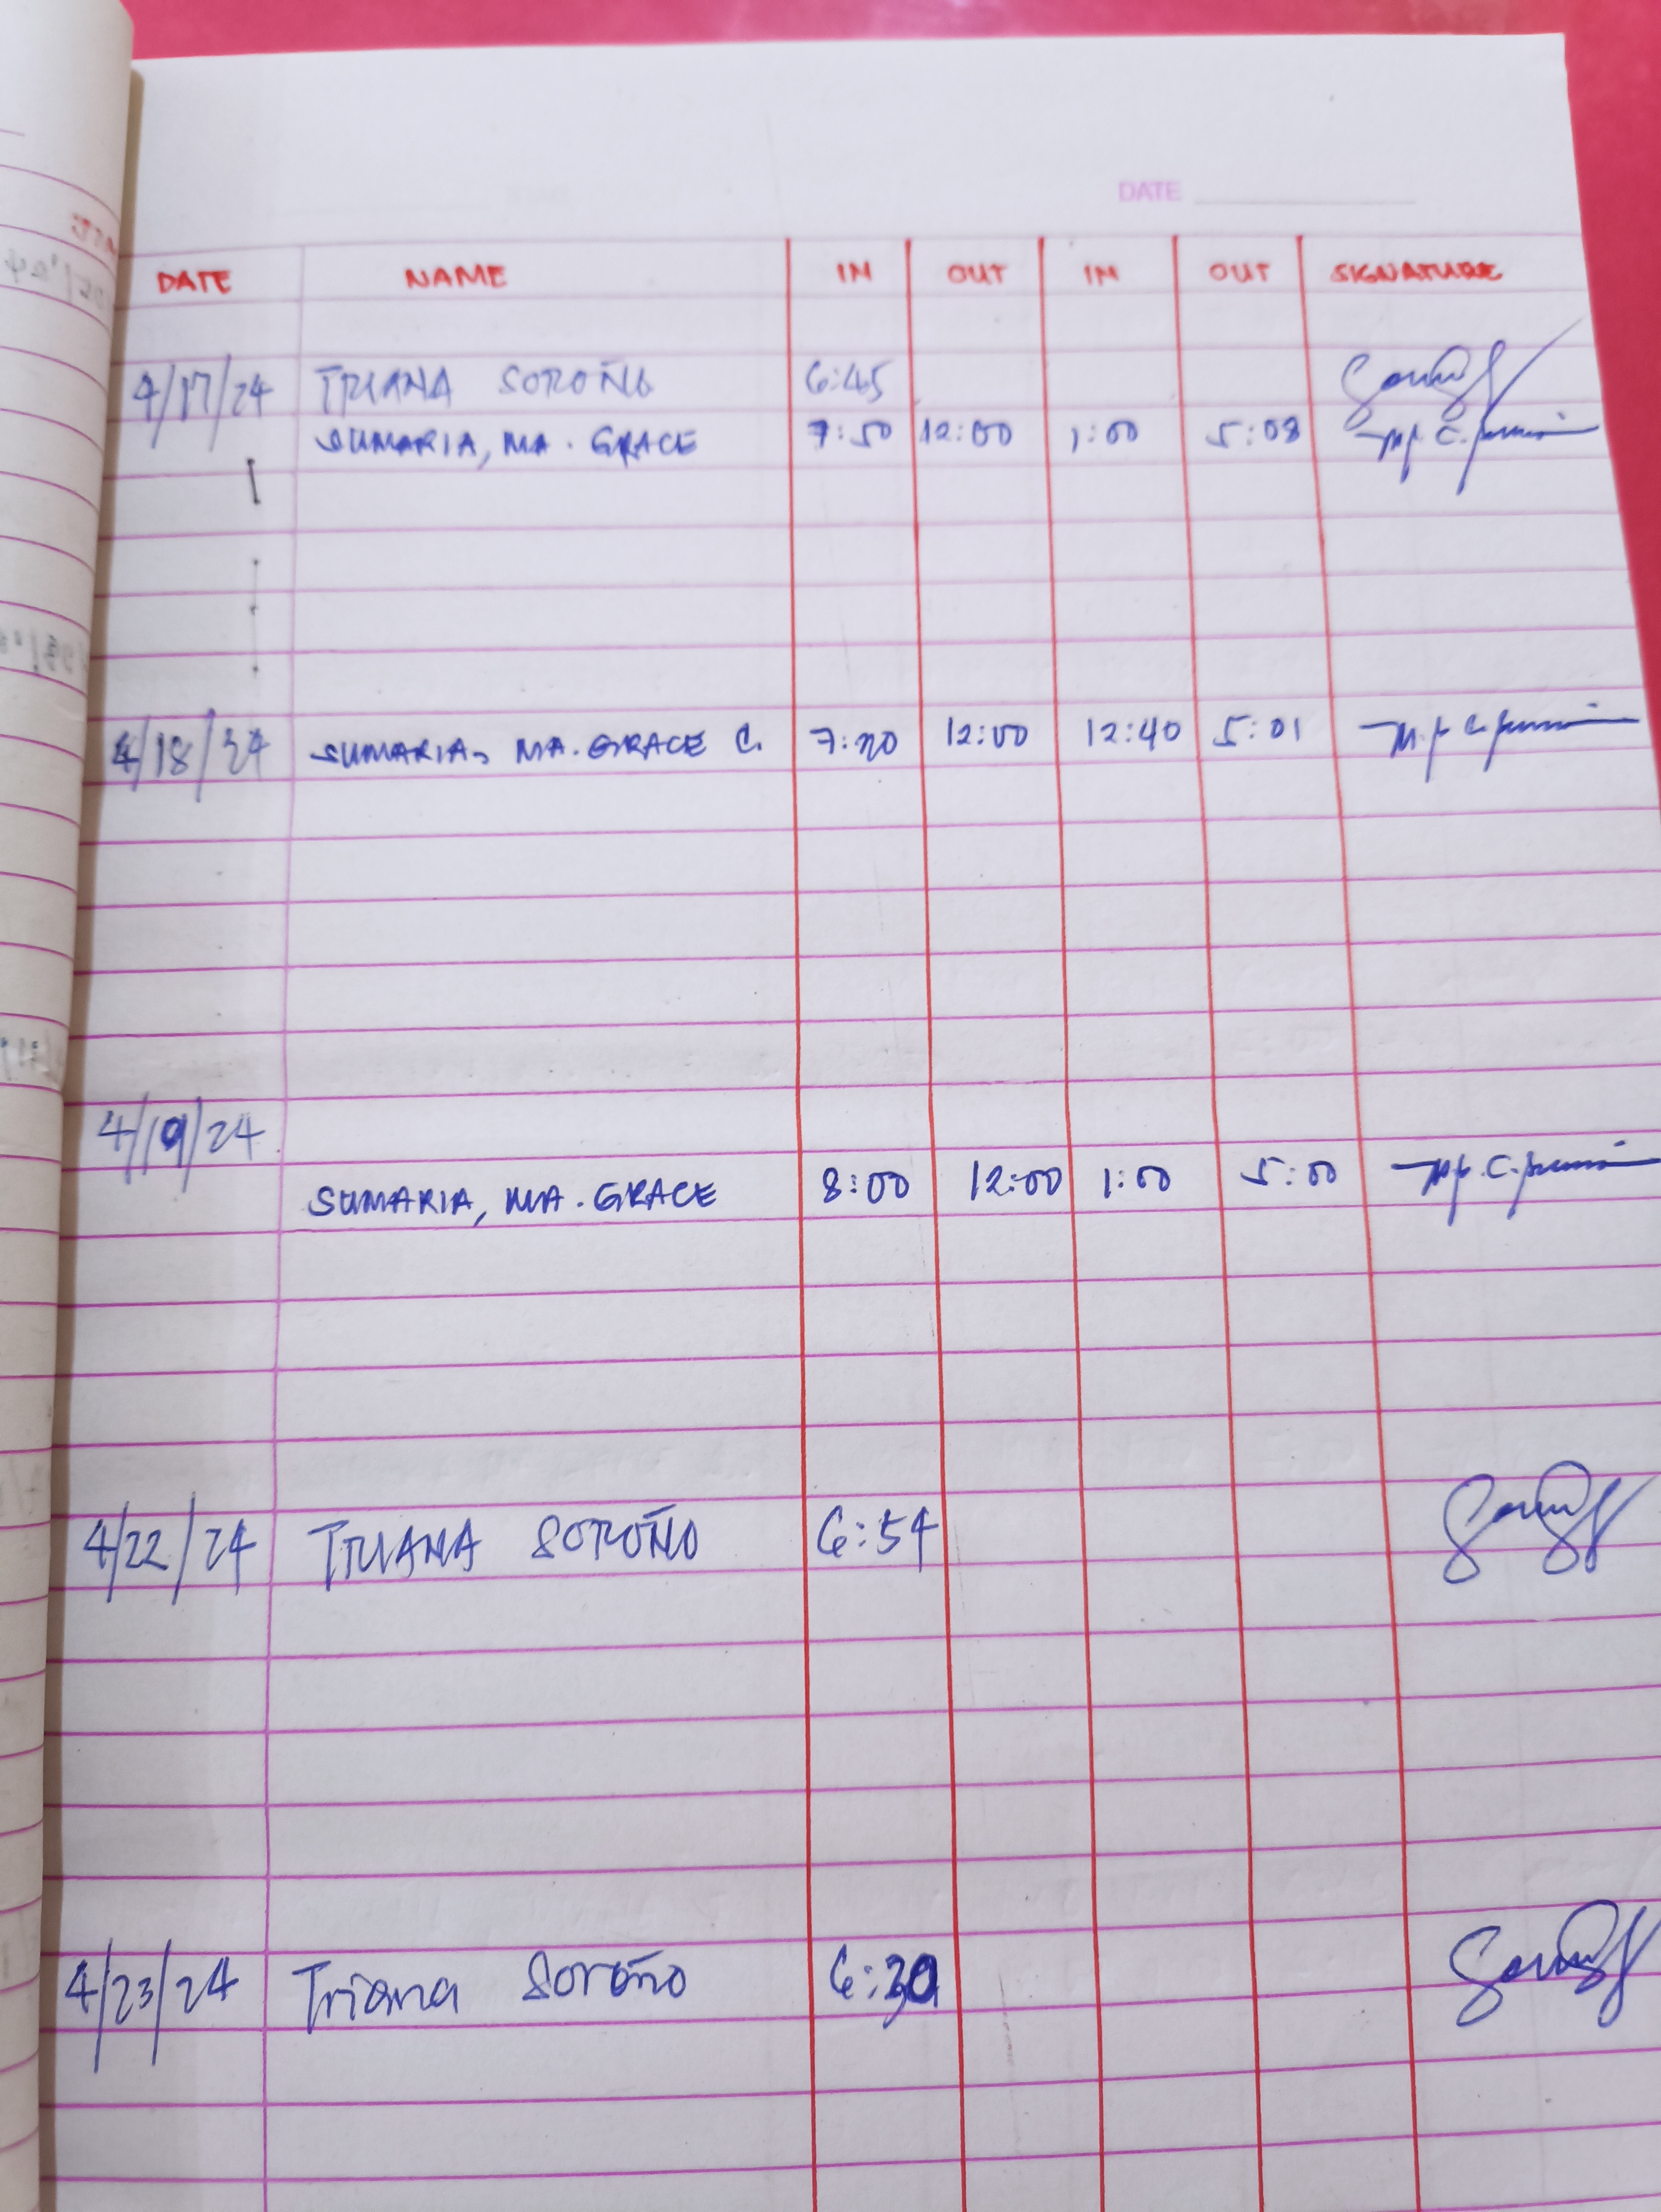 DATE
DATE NAME IN OUT IN OUT SIGNATURE
4/17/24 TRIANA SOROÑO 6:45
SUMARIA, MA. GRACE 7:50 12:00 1:00 5:08
4/18/24 SUMARIA, MA. GRACE C. 7:20 12:00 12:40 5:01
4/19/24
SUMARIA, MA. GRACE 8:00 12:00 1:00 5:00
4/22/24 TRIANA SOROÑO 6:54
4/23/24 Triana Soroño 6:30